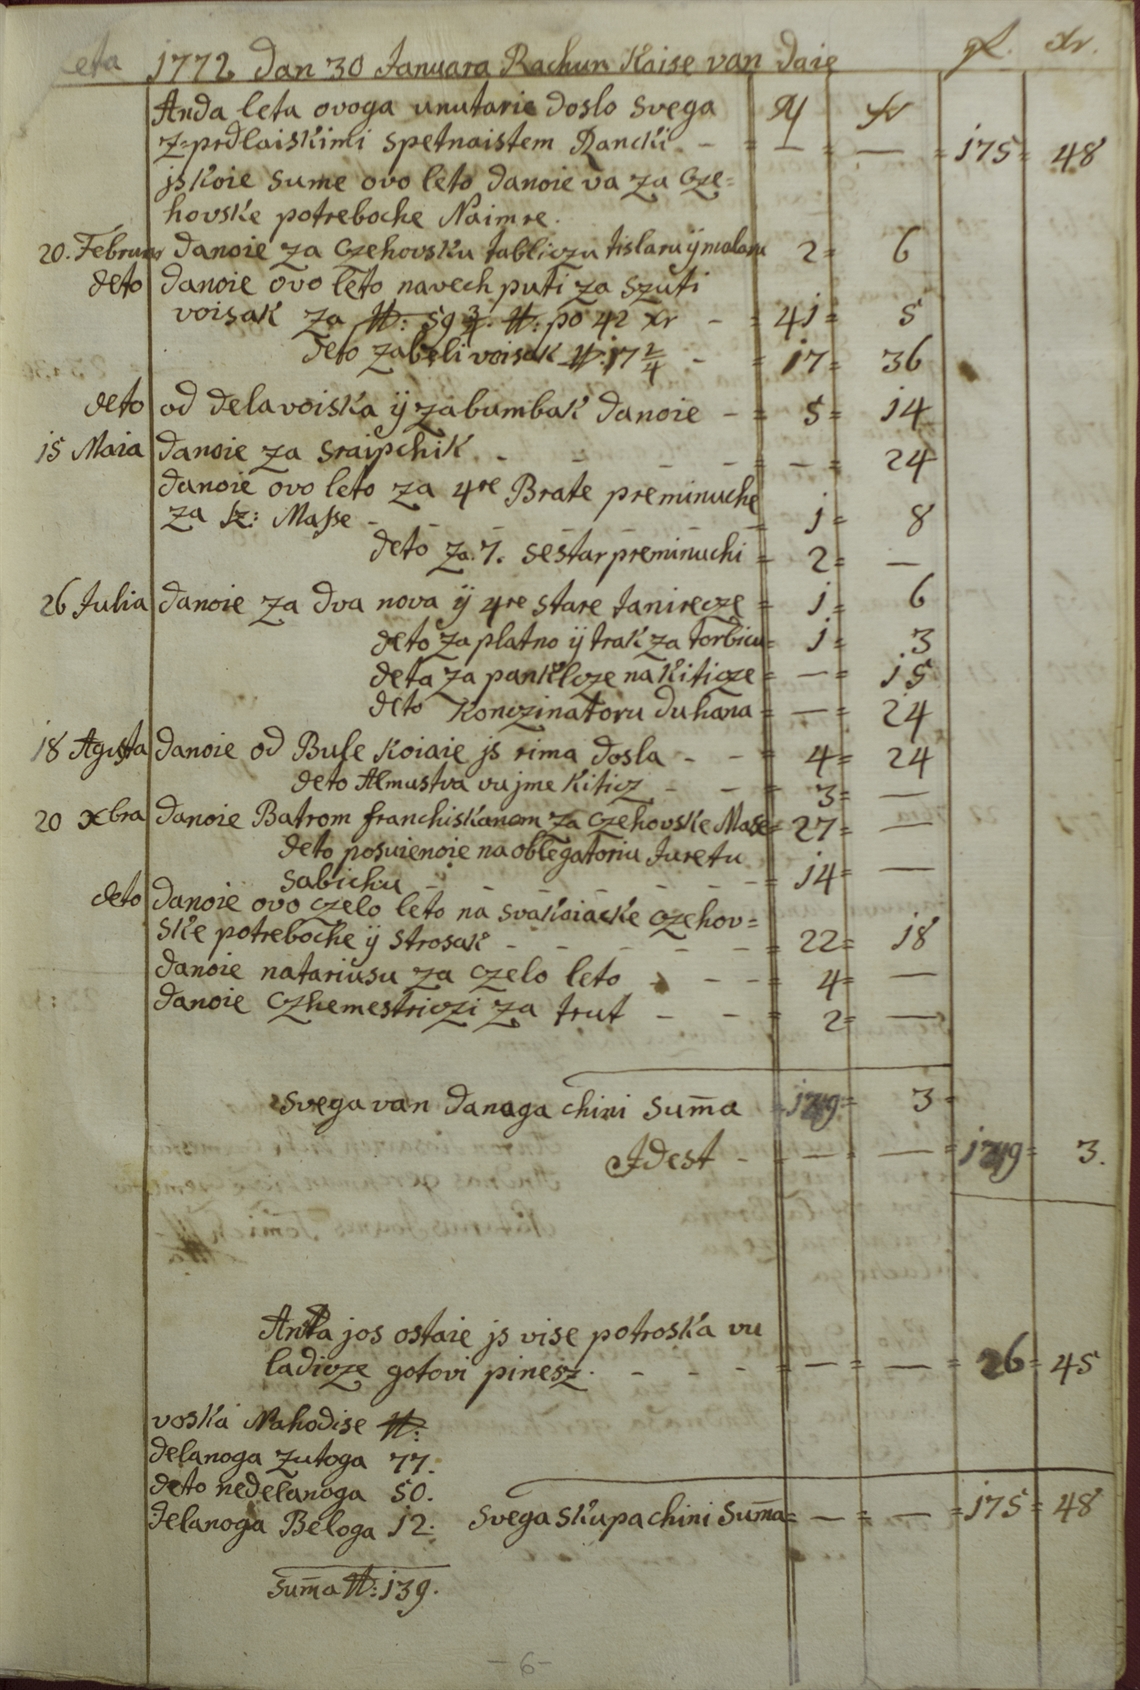 Leta 1772 Dan 30 Januara Rachun Kaise van daie fl. Xr.
Anda leta ovoga unutarie doslo svega fl xr
z=prdlaiskimi spetnaistem Rancki - = — = — = 175 = 48
js koie sume ovo leto danoie va za Cze=
hovske potreboche Naimre.
20. Februar danoie za Czehovsku tabliczu tislaru ÿ malaru 2 = 6
deto danoie ovo leto navech puti za szuti
voisak za ℔: 59 3/4. ℔: po 42 xr - = 41 = 5
deto za beli voisak ℔: 17 2/4 - = 17 = 36
deto od dela voiska ÿ za bumbak danoie - = 5 = 14
15 Maia danoie za sraipchik - - - - = — = 24
danoie ovo leto za 4re Brate preminuche
za sz: Masse - - - - - - = 1 = 8
deto za 7. sestar preminuchi = 2 = —
26 Julia danoie za dva nova ÿ 4re stare tanirecze = 1 = 6
deto za platno ÿ trak za torbicu = 1 = 3
deta za panklcze na kiticze = — = 15
deto Konczinatoru duhana = — = 24
18 Agusta danoie od Bule koiaie js rima dosla - - = 4 = 24
deto Almustva vu jme kiticz - - = 3 = —
20 Xbra danoie Patrom franchiskanom za Czehovske Mase = 27 = —
deto posuienoie na oblegatoriu Juretu
Sabichu - - - - - - - = 14 = —
deto danoie ovo czelo leto na svakoiacke czehov=
ske potreboche ÿ strosak - - - - - = 22 = 18
danoie natariusu za czelo leto - - - = 4 = —
danoie Czhemestriczi za trut - - = 2 = —
Svega van danaga chini suma = 149 = 3 =
Jdest - = — = — = 149 = 3.
Anda jos ostaie js vise potroska vu
ladicze gotovi pinesz. - - - = — = — = 26 = 45
voska Nahodise ℔:
delanoga zutoga 77.
deto nedelanoga 50.
delanoga Beloga 12. Svega skupa chini suma = — = — = 175 = 48
suma ℔: 139.
-6-